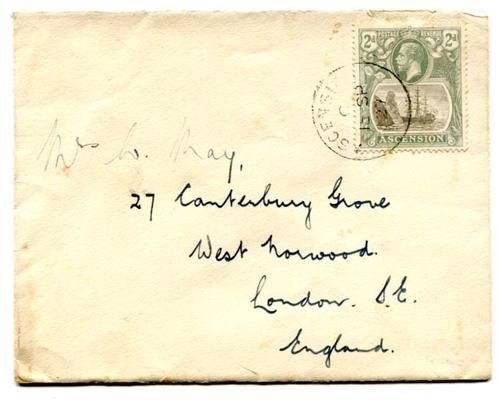 2d POSTAGE REVENUE 2d
ASCENSION
ASCENSI
Mrs W. May,
27 Canterbury Grove
West Norwood.
London. S.E.
England.